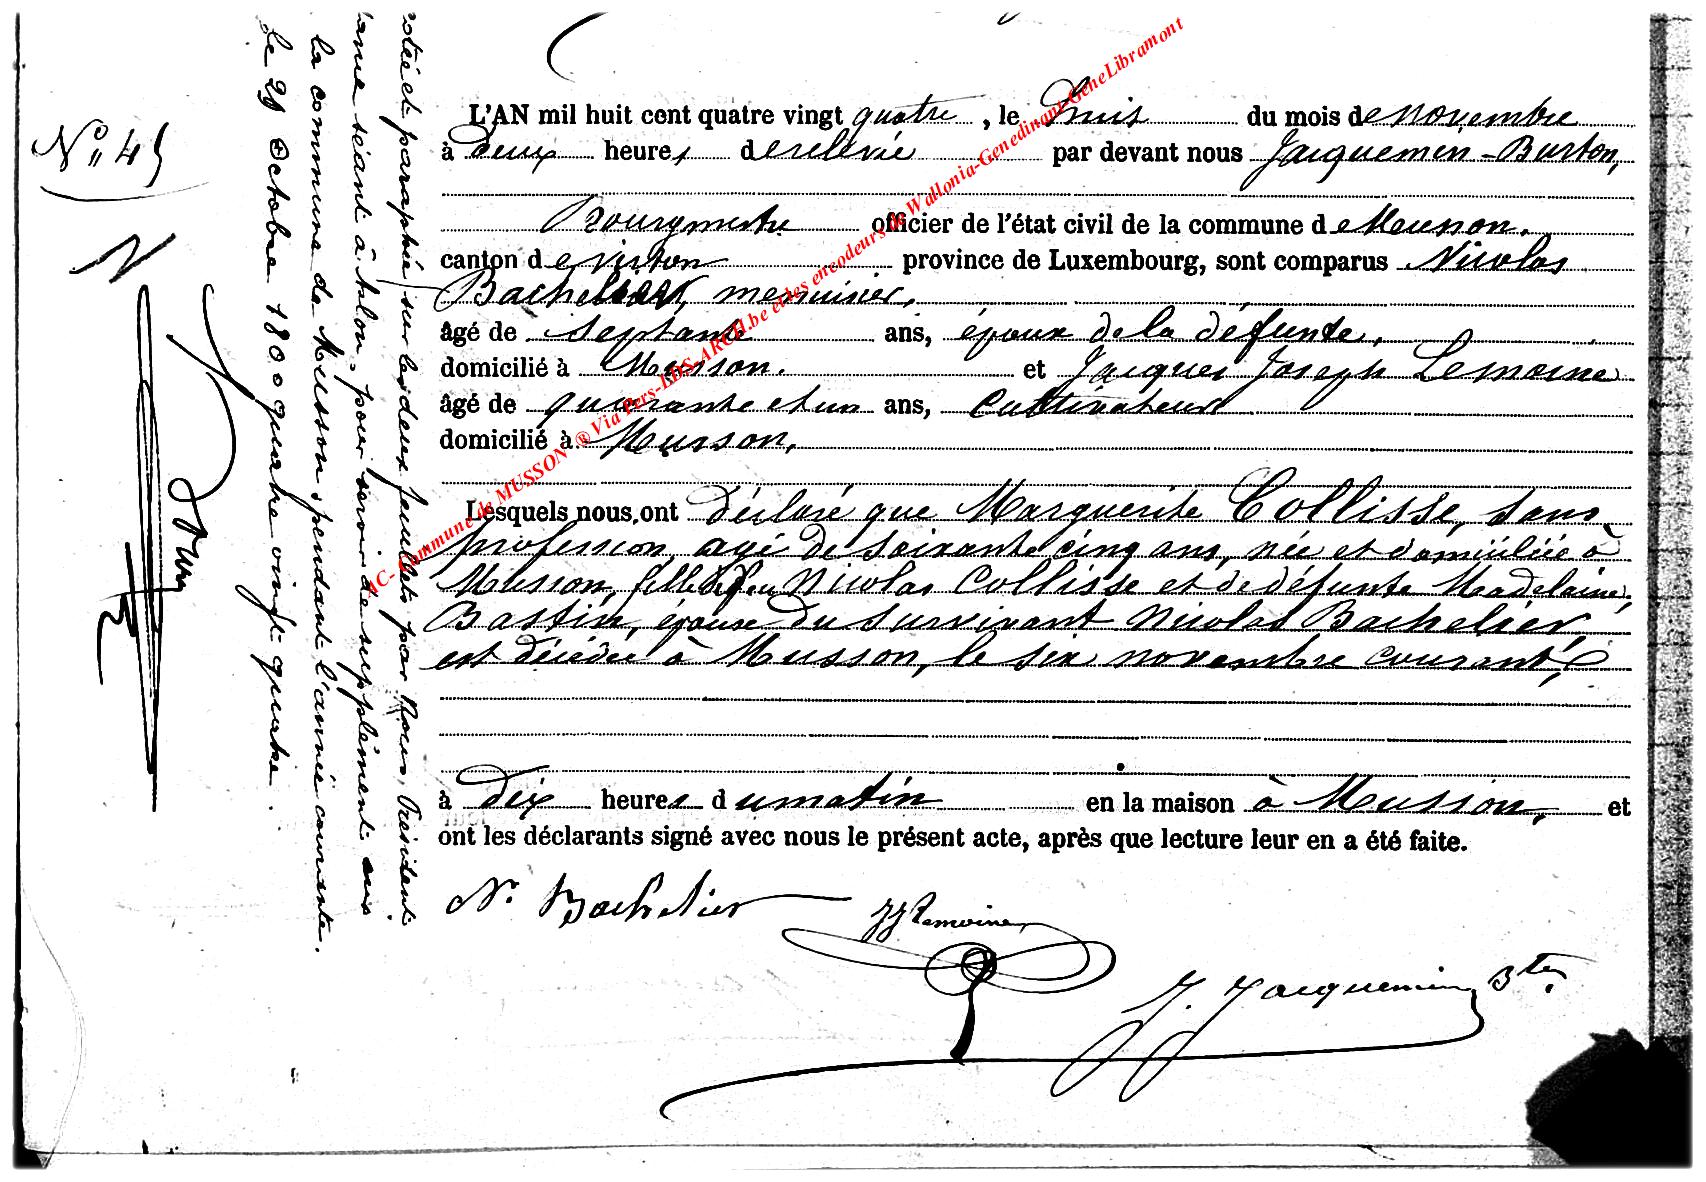 N° 45
L'AN mil huit cent quatre vingt quatre, le huit du mois de novembre
à deux heures de relevée par devant nous Jacquemin-Burton,
Bourgmestre officier de l'état civil de la commune de Musson.
canton de Virton province de Luxembourg, sont comparus Nicolas
Bachelier, menuisier,
âgé de septante ans, époux de la défunte,
domicilié à Musson. et Jacques Joseph Lemoine
âgé de quarante et un ans, Cultivateur
domicilié à Musson,
Lesquels nous ont déclaré que Marguerite Collisse, sans
profession, agé de soixante cinq ans, née et domiciliée à
Musson, fille de feu Nicolas Collisse et de défunte Madelaine
Bastin, épouse du survivant Nicolas Bachelier,
est décédée à Musson, le six novembre courant,
à dix heures du matin en la maison à Musson, et
ont les déclarants signé avec nous le présent acte, après que lecture leur en a été faite.
N. Bachelier
JJ Lemoine
J. Jacquemin Bton
cotée et paraphée sur les deux feuillets par Nous, Président
séant à Arlon, pour servir de supplément aux
la commune de Musson, pendant l'année courante.
le 29 Octobre 1800 quatre vingt quatre.
AC- Commune de MUSSON ® Via Pers-LDS-ARCH.be et les encodeurs de Wallonia-Genedinant-GeneLibramont